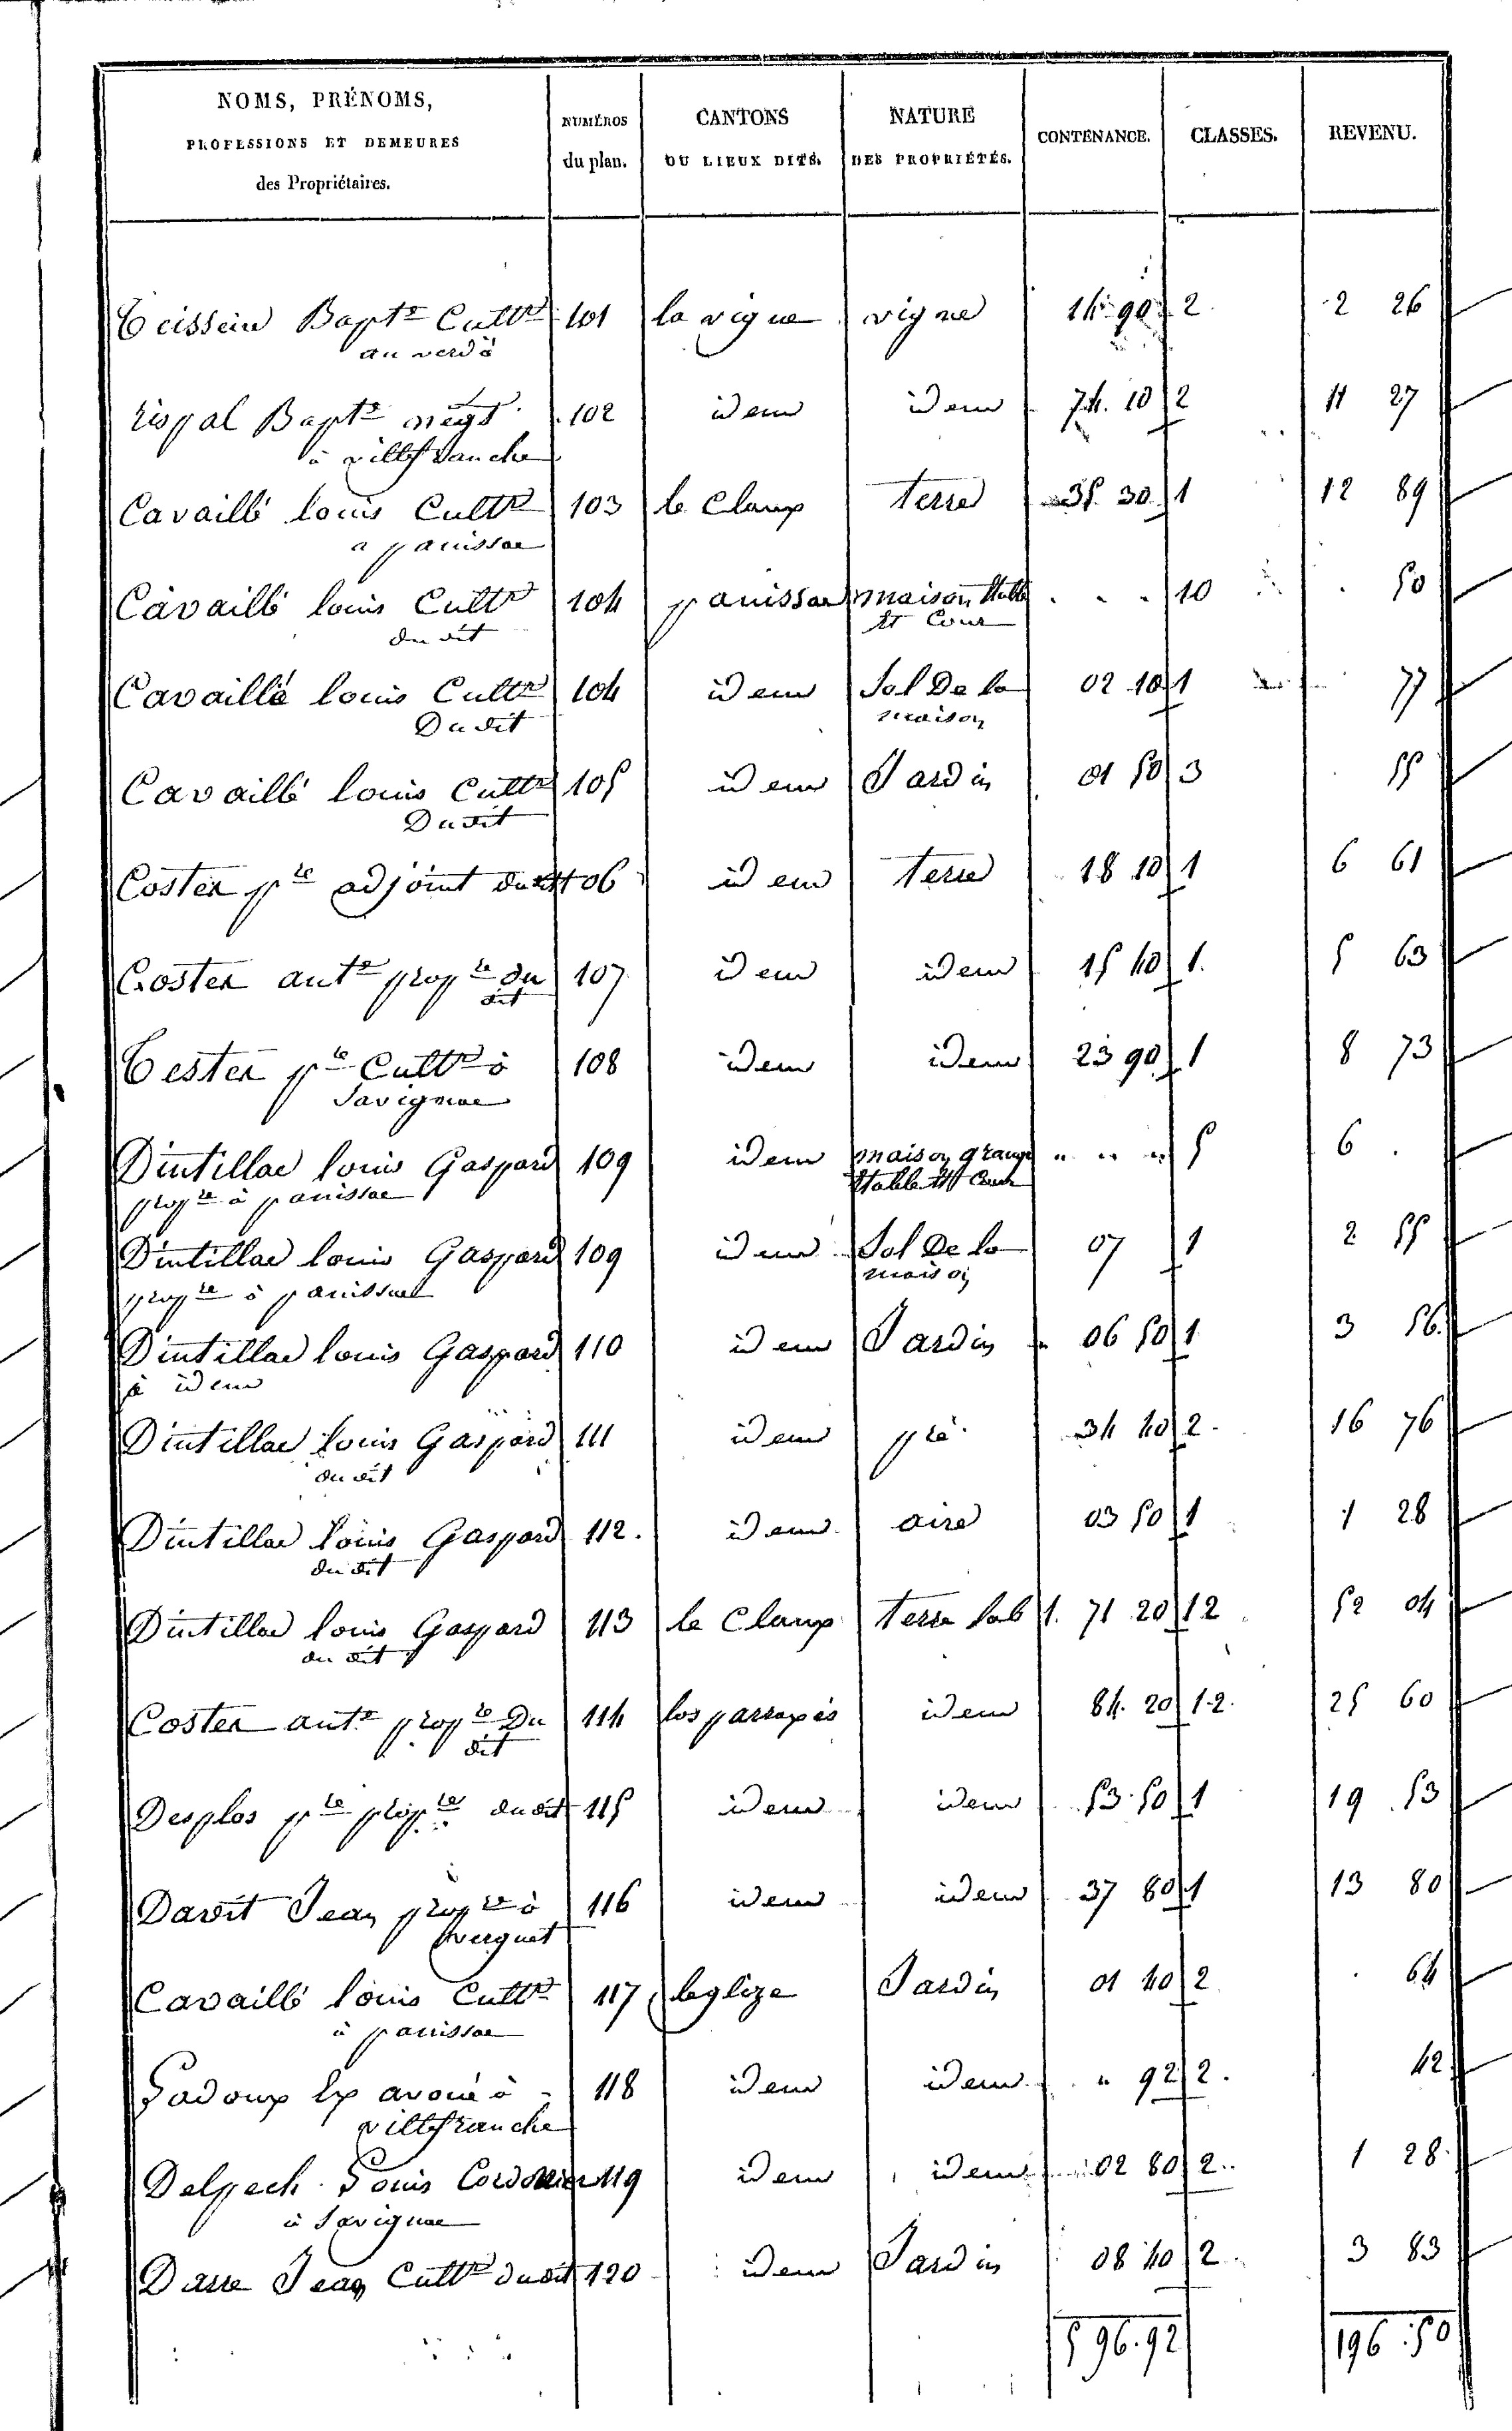 NOMS, PRÉNOMS, PROFESSIONS ET DEMEURES des Propriétaires. NUMÉROS du plan. CANTONS OU LIEUX DITS. NATURE DES PROPRIÉTÉS. CONTENANCE. CLASSES. REVENU.
Bapte Cultr 101 la vigne vigne 14 90 2 2 26
au verdé
Bapte négt 102 idem idem 74 10 2 11 27
à villefranche
Cavaillé louis Cultr 103 le Claup terre 35 30 1 12 89
a panissac
Cavaillé louis Cultr 104 panissac maison étable . . . 10 . 50
du dit et Cour
Cavaillé louis Cultr 104 idem Sol De la 02 10 1 77
Du dit maison
Cavaillé louis Cultr 105 idem Jardin 01 50 3 55
Du dit
Coster pre adjoint du dit 106 idem terre 18 10 1 6 61
Coster ante propre du 107 idem idem 15 40 1. 5 63
dit
Tester pre Cultr à 108 idem idem 23 90 1 8 73
Savignac
Dintillac louis Gaspard 109 idem maison grange " " " 5 6 .
propre à panissac étable et Cour
Dintillac louis Gaspard 109 idem Sol De la 07 1 2 55
propre à panissac maison
Dintillac louis Gaspard 110 idem Jardin 06 50 1 3 56
à idem
Dintillac louis Gaspard 111 idem pré 34 40 2 16 76
du dit
Dintillac louis Gaspard 112. idem aire 03 50 1 1 28
du dit
Dintillac louis Gaspard 113 le Claup terre lab 1. 71 20 12 52 04
du dit
Coster ante propre Du 114 los parropés idem 84. 20 1-2. 25 60
dit
Desplos pre propre du dit 115 idem idem 53 50 1 19 53
Davit Jean propre à 116 idem idem 37 80 1 13 80
Cavaillé louis Cultr 117 leglize Jardin 01 40 2 . 64
à panissac
Ladoux Ex avoué à 118 idem idem " 92 2. 42
villefranche
Delpech Louis Cordonier 119 idem idem 02 80 2 1 28
à Savignac
Jean Cultr du dit 120 idem Jardin 08 40 2 3 83
5 96.92 196 .50